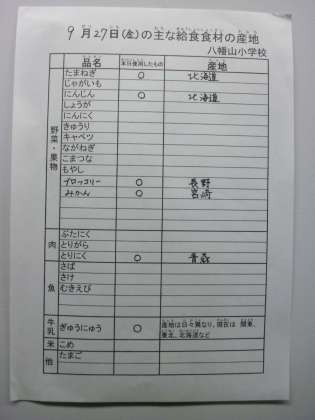 9月27日(金)の主な給食食材の産地
八幡山小学校
品名 本日使用したもの 産地
野菜・果物
たまねぎ ○ 北海道
じゃがいも
にんじん ○ 北海道
しょうが
にんにく
きゅうり
キャベツ
ながねぎ
こまつな
もやし
ブロッコリー ○ 長野
みかん ○ 宮崎
肉
ぶたにく
とりがら
とりにく ○ 青森
魚
さば
さけ
むきえび
牛乳 ぎゅうにゅう ○ 産地は日々異なり、現在は 関東、
東北、北海道など
米 こめ
他 たまご